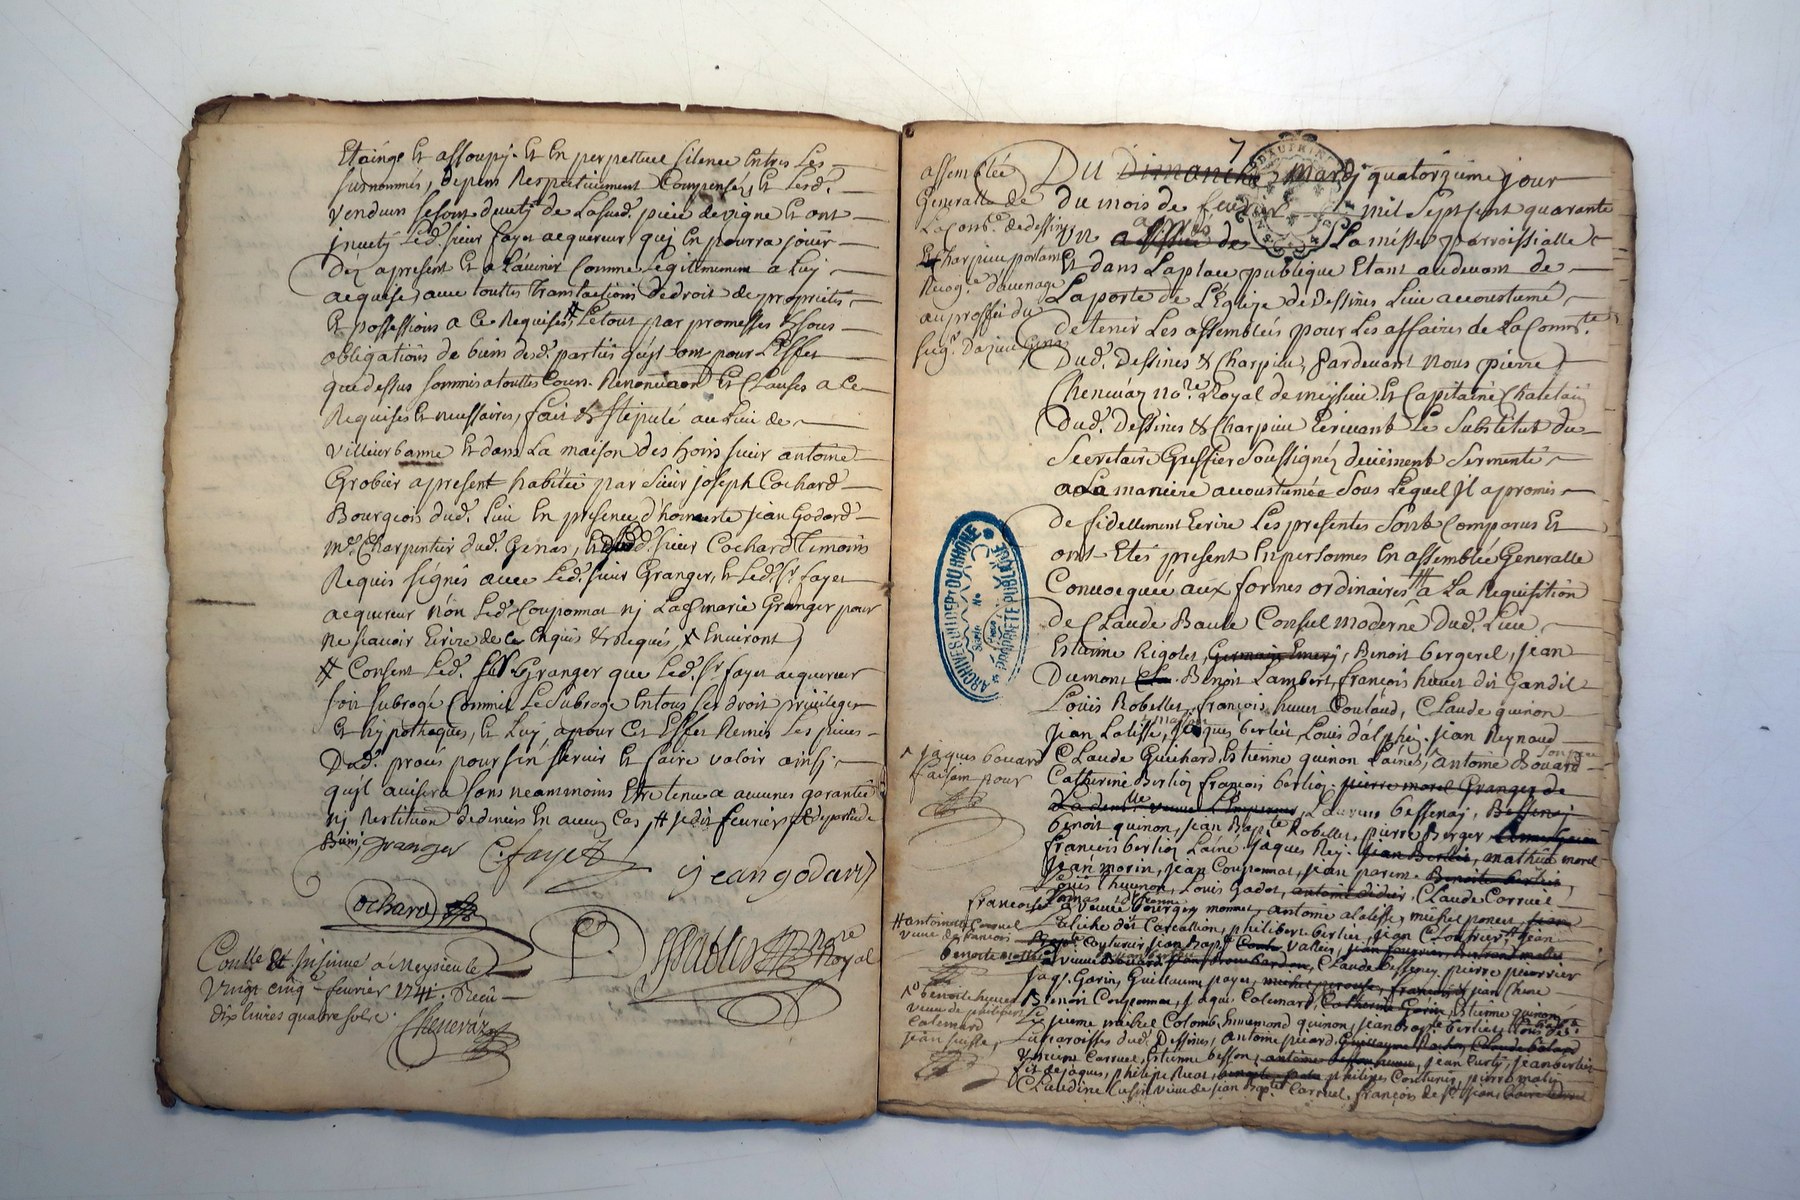 Etainge Et assoupy. Et En perpetuel silence Entres Les
susnommés, depens Respectivement Compensés, Et Lesd.
vendeurs se sont devetis de La sud. piece de vigne Et ont
jnvety Led. sieur fayet acquereur qui En pourra jouir
Dez apresent Et a L'avenir Comme Legitimement a Luy
acquise, avec touttes Translactions de droit de proprietés
Et possessions a Ce Requises # Le tout par promesses & sous
obligations de biens desd. parties qu'ils ont pour L'Effet
que dessus sommis a touttes Cours. Renonciaon Et Clauses a Ce
Requises Et necessaires, fait & stipulé au Lieu de
villeurbanne Et dans La maison des hoirs sieur antoine
Grobier apresent habitée par Sieur joseph Cochard
Bourgeois dud. Lieu En presence d'honneste jean Godard
me. Charpentier dud. Genas, Et dud. sieur Cochard Temoins
Requis signés avec Led. sieur Granger, Et Led. sr. fayet
acquereur non Led. Couponnat nj Lad. marie Granger pour
ne scavoir Ecrire de ce Enquis & Requis, x Environt
# Consent Led. sr. Granger que Led. sr. fayet acquereur
soit subrogé Comme Le Subroge En tous ses droit privileges
Et hypotheques, Et Luy a pour Cet Effet Remis Les pieces
Dud. procés pour s'en servir Et faire valoir ainsj
qu'jl avisera sans neanmoins Etre tenu a aucunes garantie
nj Restitution de deniers En aucun Cas, # je dis fevrier
Granger C. fayet jean godard
Cochard
Royal
Conttlé Et jnsinué a Meysieu Le
vingt cinq fevrier 1741. Reçû
dix livres quatre sols.
Chenevaz
7
assemblée
Generalle de
La Comté. de dessines
Et Charpieu portant
Recog.e d'avenage
au proffit du
seigr. Dazieu Genas
DU Dimanche Mardj quatorzieme jour
du mois de fevrier mil Sept sent quarante
un a l'issue de La messe parroissialle
Et dans La place publique Etant audevant de
La porte de L'Eglize de Dessines Lieu accoustumé
de tenir Les assemblées pour Les affaires de La Commté.
Dud. Dessines & Charpieu, pardevant nous pierre
Chenevaz nore. Royal de meysieu Et Capitaine Chatelain
Dud. Dessines & Charpieu Ecrivant Le Substitut du
Secretaire Greffier Soussigné, deüement Sermenté
a La maniere accoustumée Sous Lequel jl a promis
de fidellement Ecrire Les presentes Sont Comparus Et
ont Etés present En personnes En assemblée Generalle
Convocquée aux formes ordinaires a La Requisition
de Claude Baule Consul moderne Dud. Lieu
Estienne Rigolet, Germain Emerj, Benoit bergerel, jean
Dumont Benoit Lambert, françois huvet dit Gandil
Loüis Robellet, françois huvet Coutaud, Claude quinon
jean Latisse, jaques berlié, Louis dalphé, jean Reynaud
Claude Guichard, Estienne quinon L'ainé, Antoine Bouard
^ jaques bouard
faisant pour
Catherine Berlioz françois berlioz. pierre morel Granger de
Laurens bessenaj, Bessenaj
benoit quinon, jean Bapte. Robellet, pierre Berger
francois berlioz Lainé. jaques Rej. jean Berlié, mathieu morel
jean morin, jean Couponnat, jean parent. Benoite berlié
Louis thuenon, Louis Gadot, antoine didier, Claude Corruel
francoise
La veuve Bourgey monnet, antoine alatisse, michel poncet, jean
Catiche dit Carcallion, philibert berlié, jean Cloutrier, # jean
# antoinette Corruel
veuve de francois
Couturier jean Bapt. Conte vallier,
benoite
La veuve Bouvard Claude bessenay pierre pecorrier
jaq. Garin, Guillaume payet, michel perouse, francois jean Chene
Benoit Couponnat, jaq. Colemard, Catherine Garin, Estienne quinon
^o benoite huvet
veuve de philibert
Colemard
jean
Le jeune michel Colomb, himmond quinon, jean Bapte. berliet
La paroisses dud. Dessines, antoine picard, Guillaume
vincent Corruel, Estienne besson, antoine jean Curty, jean berlié
fils de jaques, philipe Ruat, philipes Couturier, pierre
Claudine veuve de jean Bapt. Corruel, françois de st. jean,
ARCHIVES DU DÉPT DU RHÔNE
PROPRIÉTÉ PUBLIQUE
Série
No